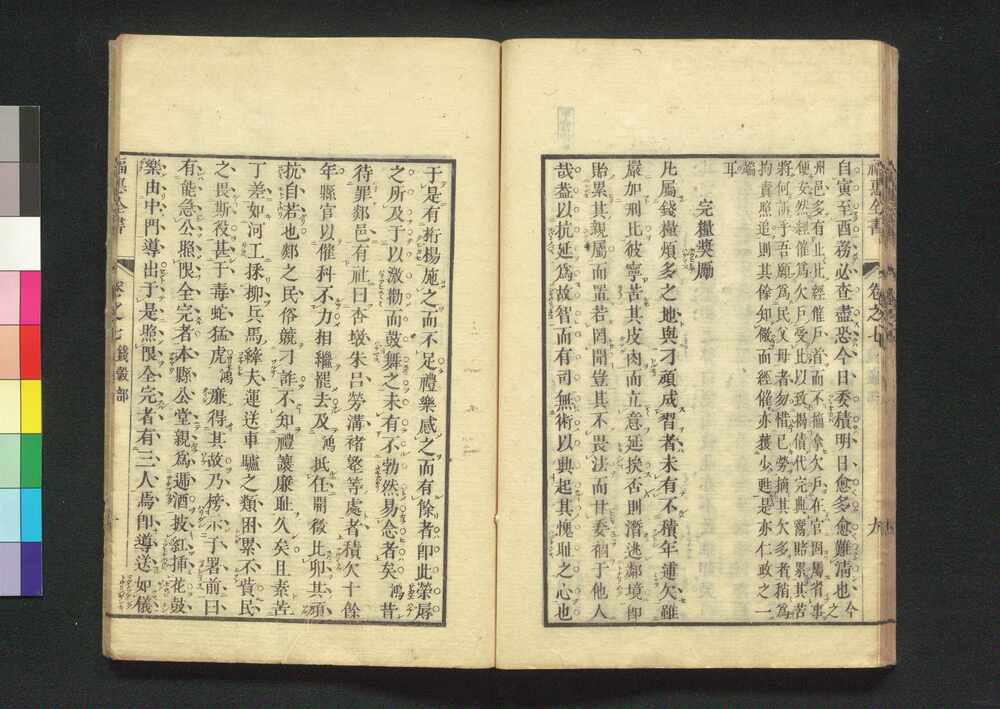 福惠全書 卷之七 九
自寅至酉務必查盡恐今日委積明日愈多愈難清也今之
州邑多有止比經催戶首而不摘拿欠戶在官固屬省事
便安然經催爲欠戶受比以致揭債代完典鬻賠累其苦
將何訴乎吾願爲民父母者勿惜已勞摘其欠多者稍爲
拘責照追則其餘知儆而經催亦獲少甦是亦仁政之一
端
耳
完糧獎勵
凡屬錢糧煩多之地與刁頑成習者未有不積年逋欠雖
嚴加刑比彼寧苦其皮肉而立意延挨否則潛逃鄰境卽
貽累其親屬而置若罔聞豈其不畏法而甘委禍于他人
哉葢以抗延爲故智而有司無術以興起其愧耻之心也
于是有桁楊施之而不足禮樂感之而有餘者卽此榮辱
之所及于以激勸而鼓舞之未有不勃然易念者矣鴻昔
待罪郯邑有社曰杏墩朱呂勞溝褚墪等處者積欠十餘
年縣官以催科不力相繼罷去及鴻抵任開徵比卯其頑
抗自若也郯之民俗競刁詐不知禮讓廉耻久矣且素苦
丁差如河工採柳兵馬縴夫運送車驢之類困累不貲民
之畏斯役甚于毒蛇猛虎鴻廉得其故乃榜示于署前曰
有能急公照限全完者本縣公堂親爲遞酒披紅挿花鼓
樂由中門導出于是照限全完者有二三人焉卽導送如儀
福惠全書 卷之七 錢穀部 十